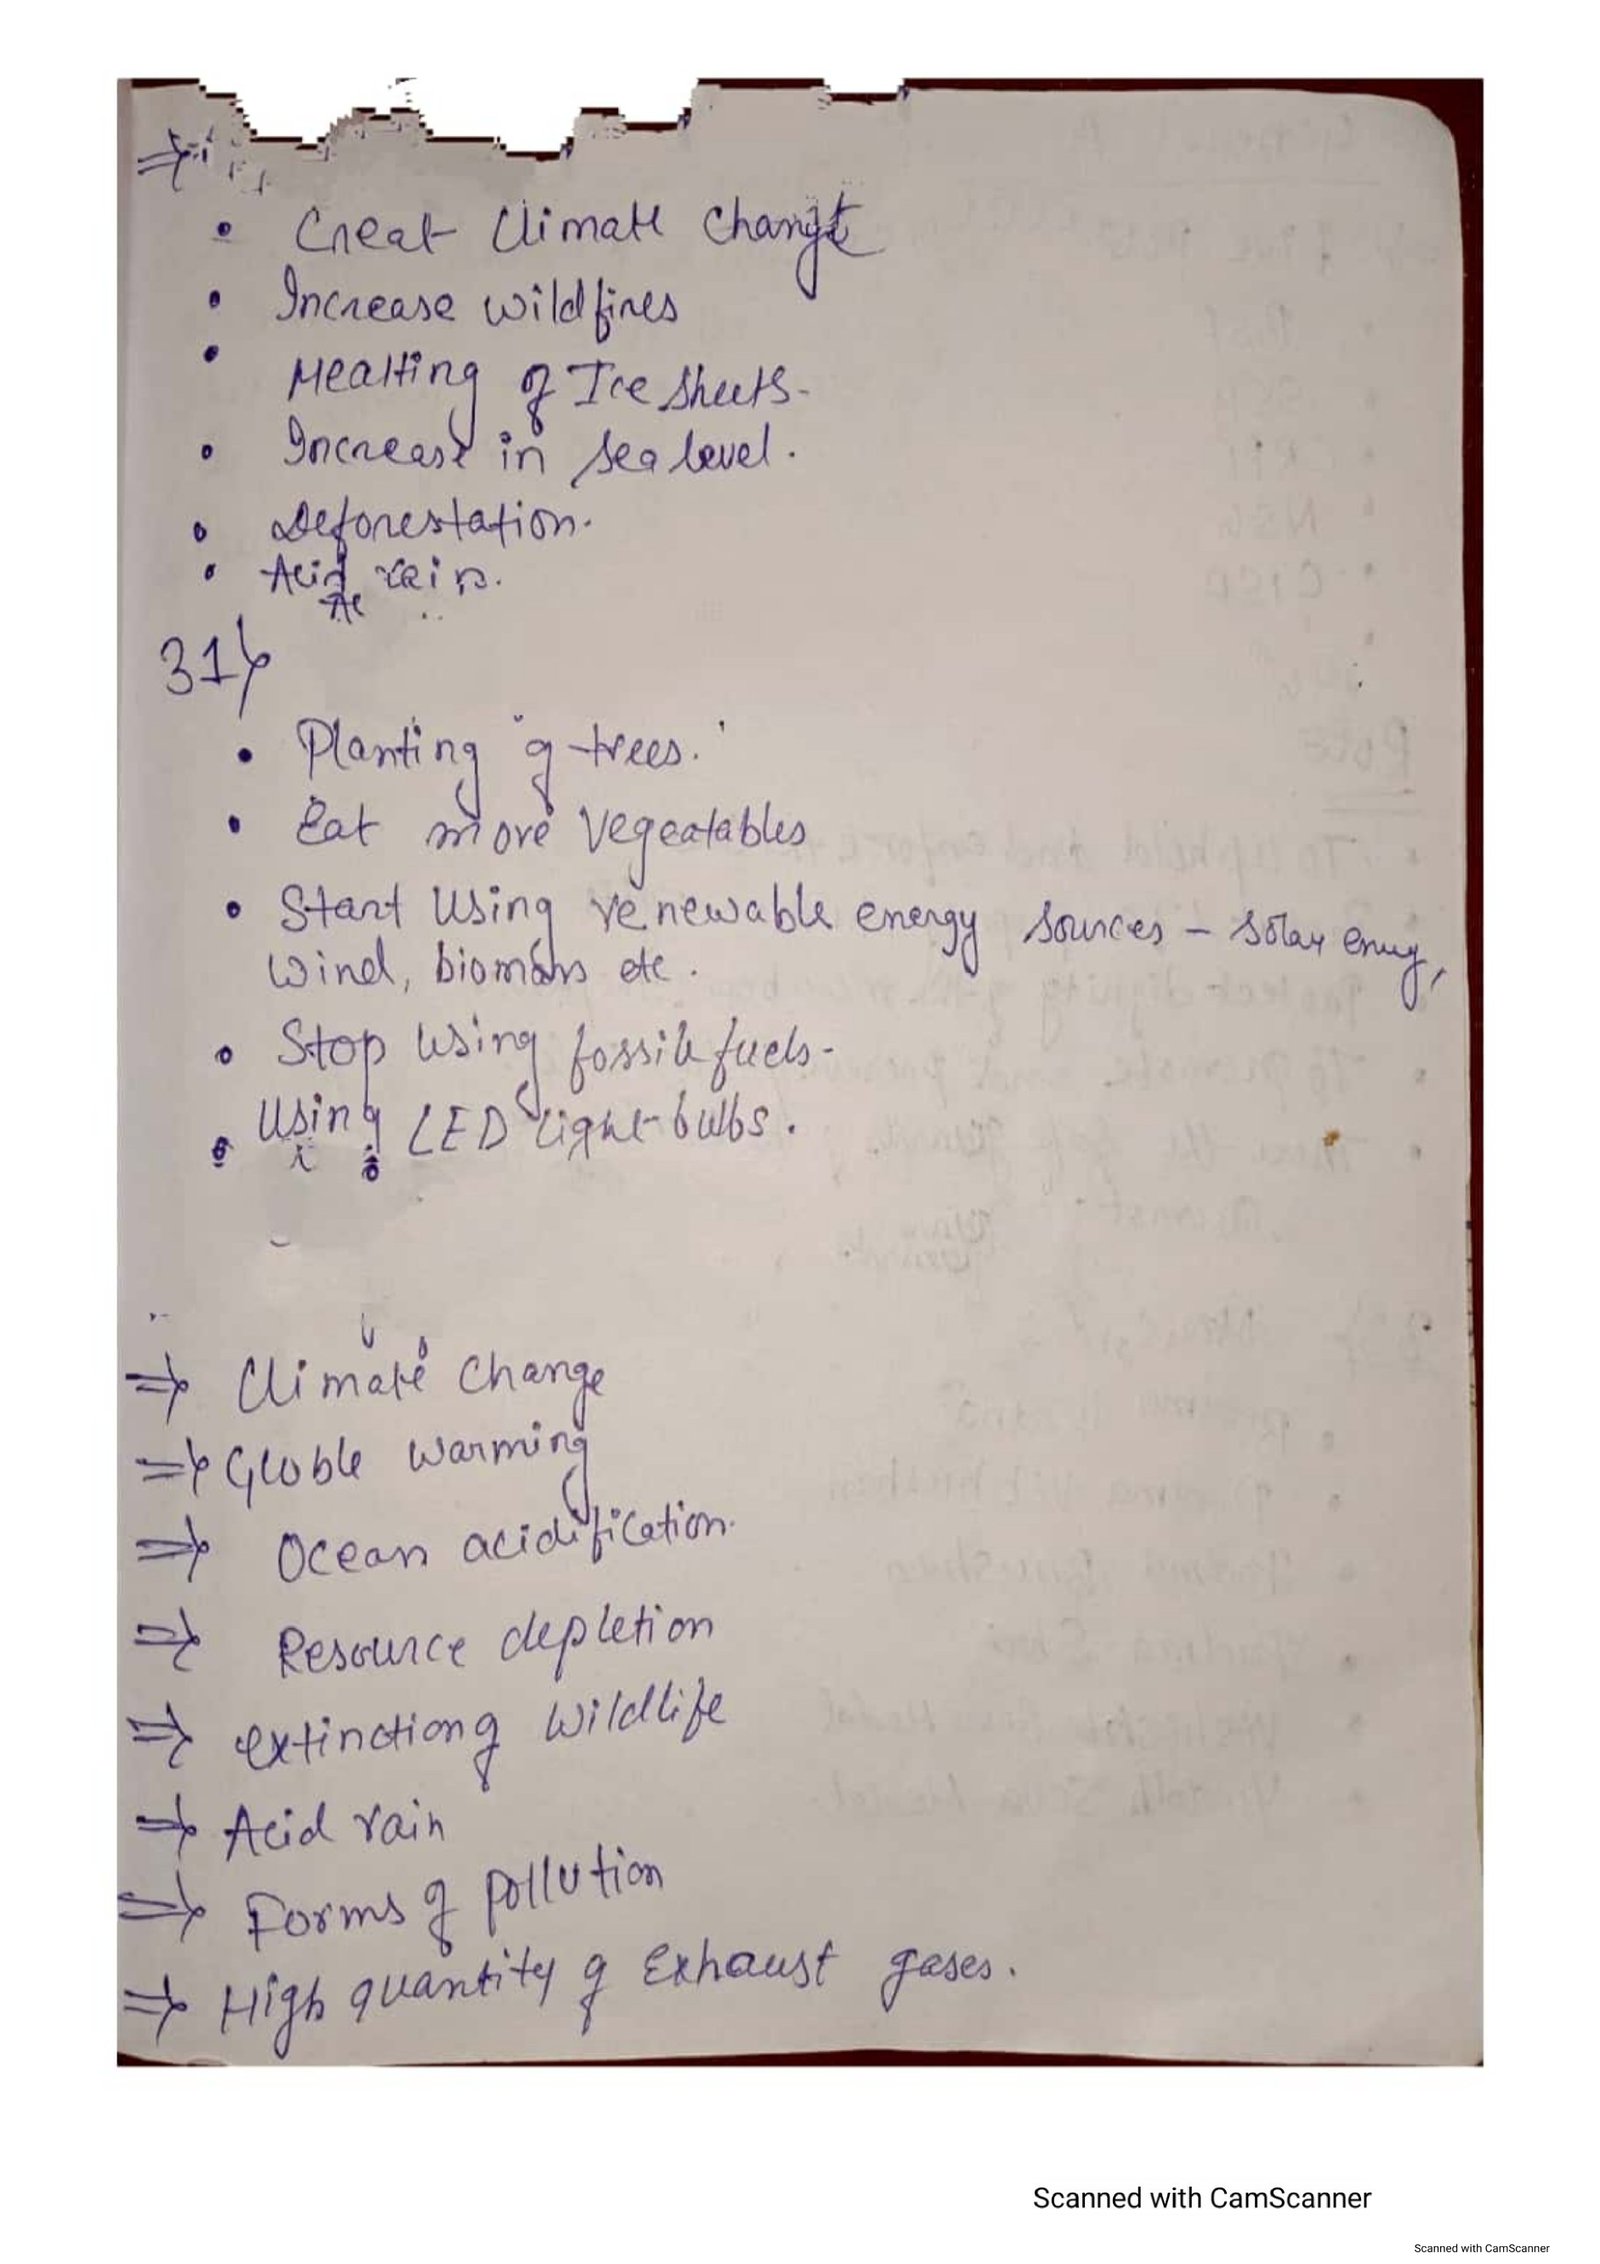 ⇒
• Creat Climate Change
• Increase wildfires
• Mealting of Ice sheets.
• Increase in sea level.
• Deforestation.
• Acid rain.
31)
• Planting of trees.
• Eat more vegeatables
• Start Using renewable energy sources - solar energy,
wind, biomass etc.
• Stop Using fossile fuels.
• Using LED light bulbs.
⇒ Climate Change
⇒ Globle warming
⇒ Ocean acidification.
⇒ Resource depletion
⇒ extinction of Wildlife
⇒ Acid rain
⇒ Forms of pollution
⇒ High quantity of Exhaust gases.
Scanned with CamScanner
Scanned with CamScanner